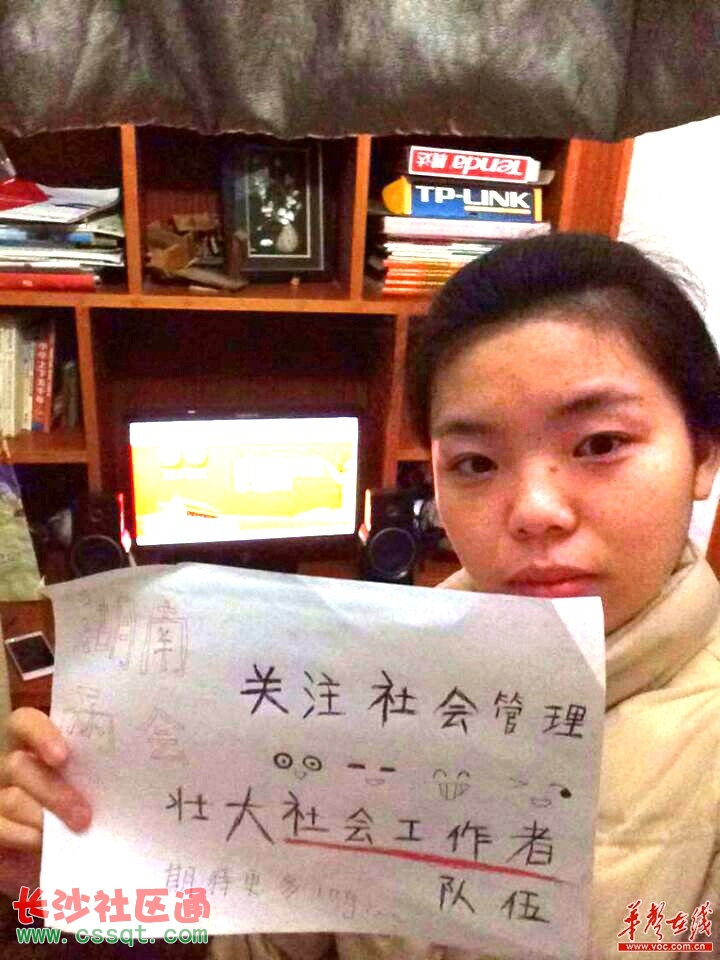 Tenda 腾达
TP-LINK
湖南
关注社会管理
会
壮大社会工作者
期待更多ing
队伍
长沙社区通
www.cssqt.com
华声在线
www.voc.com.cn